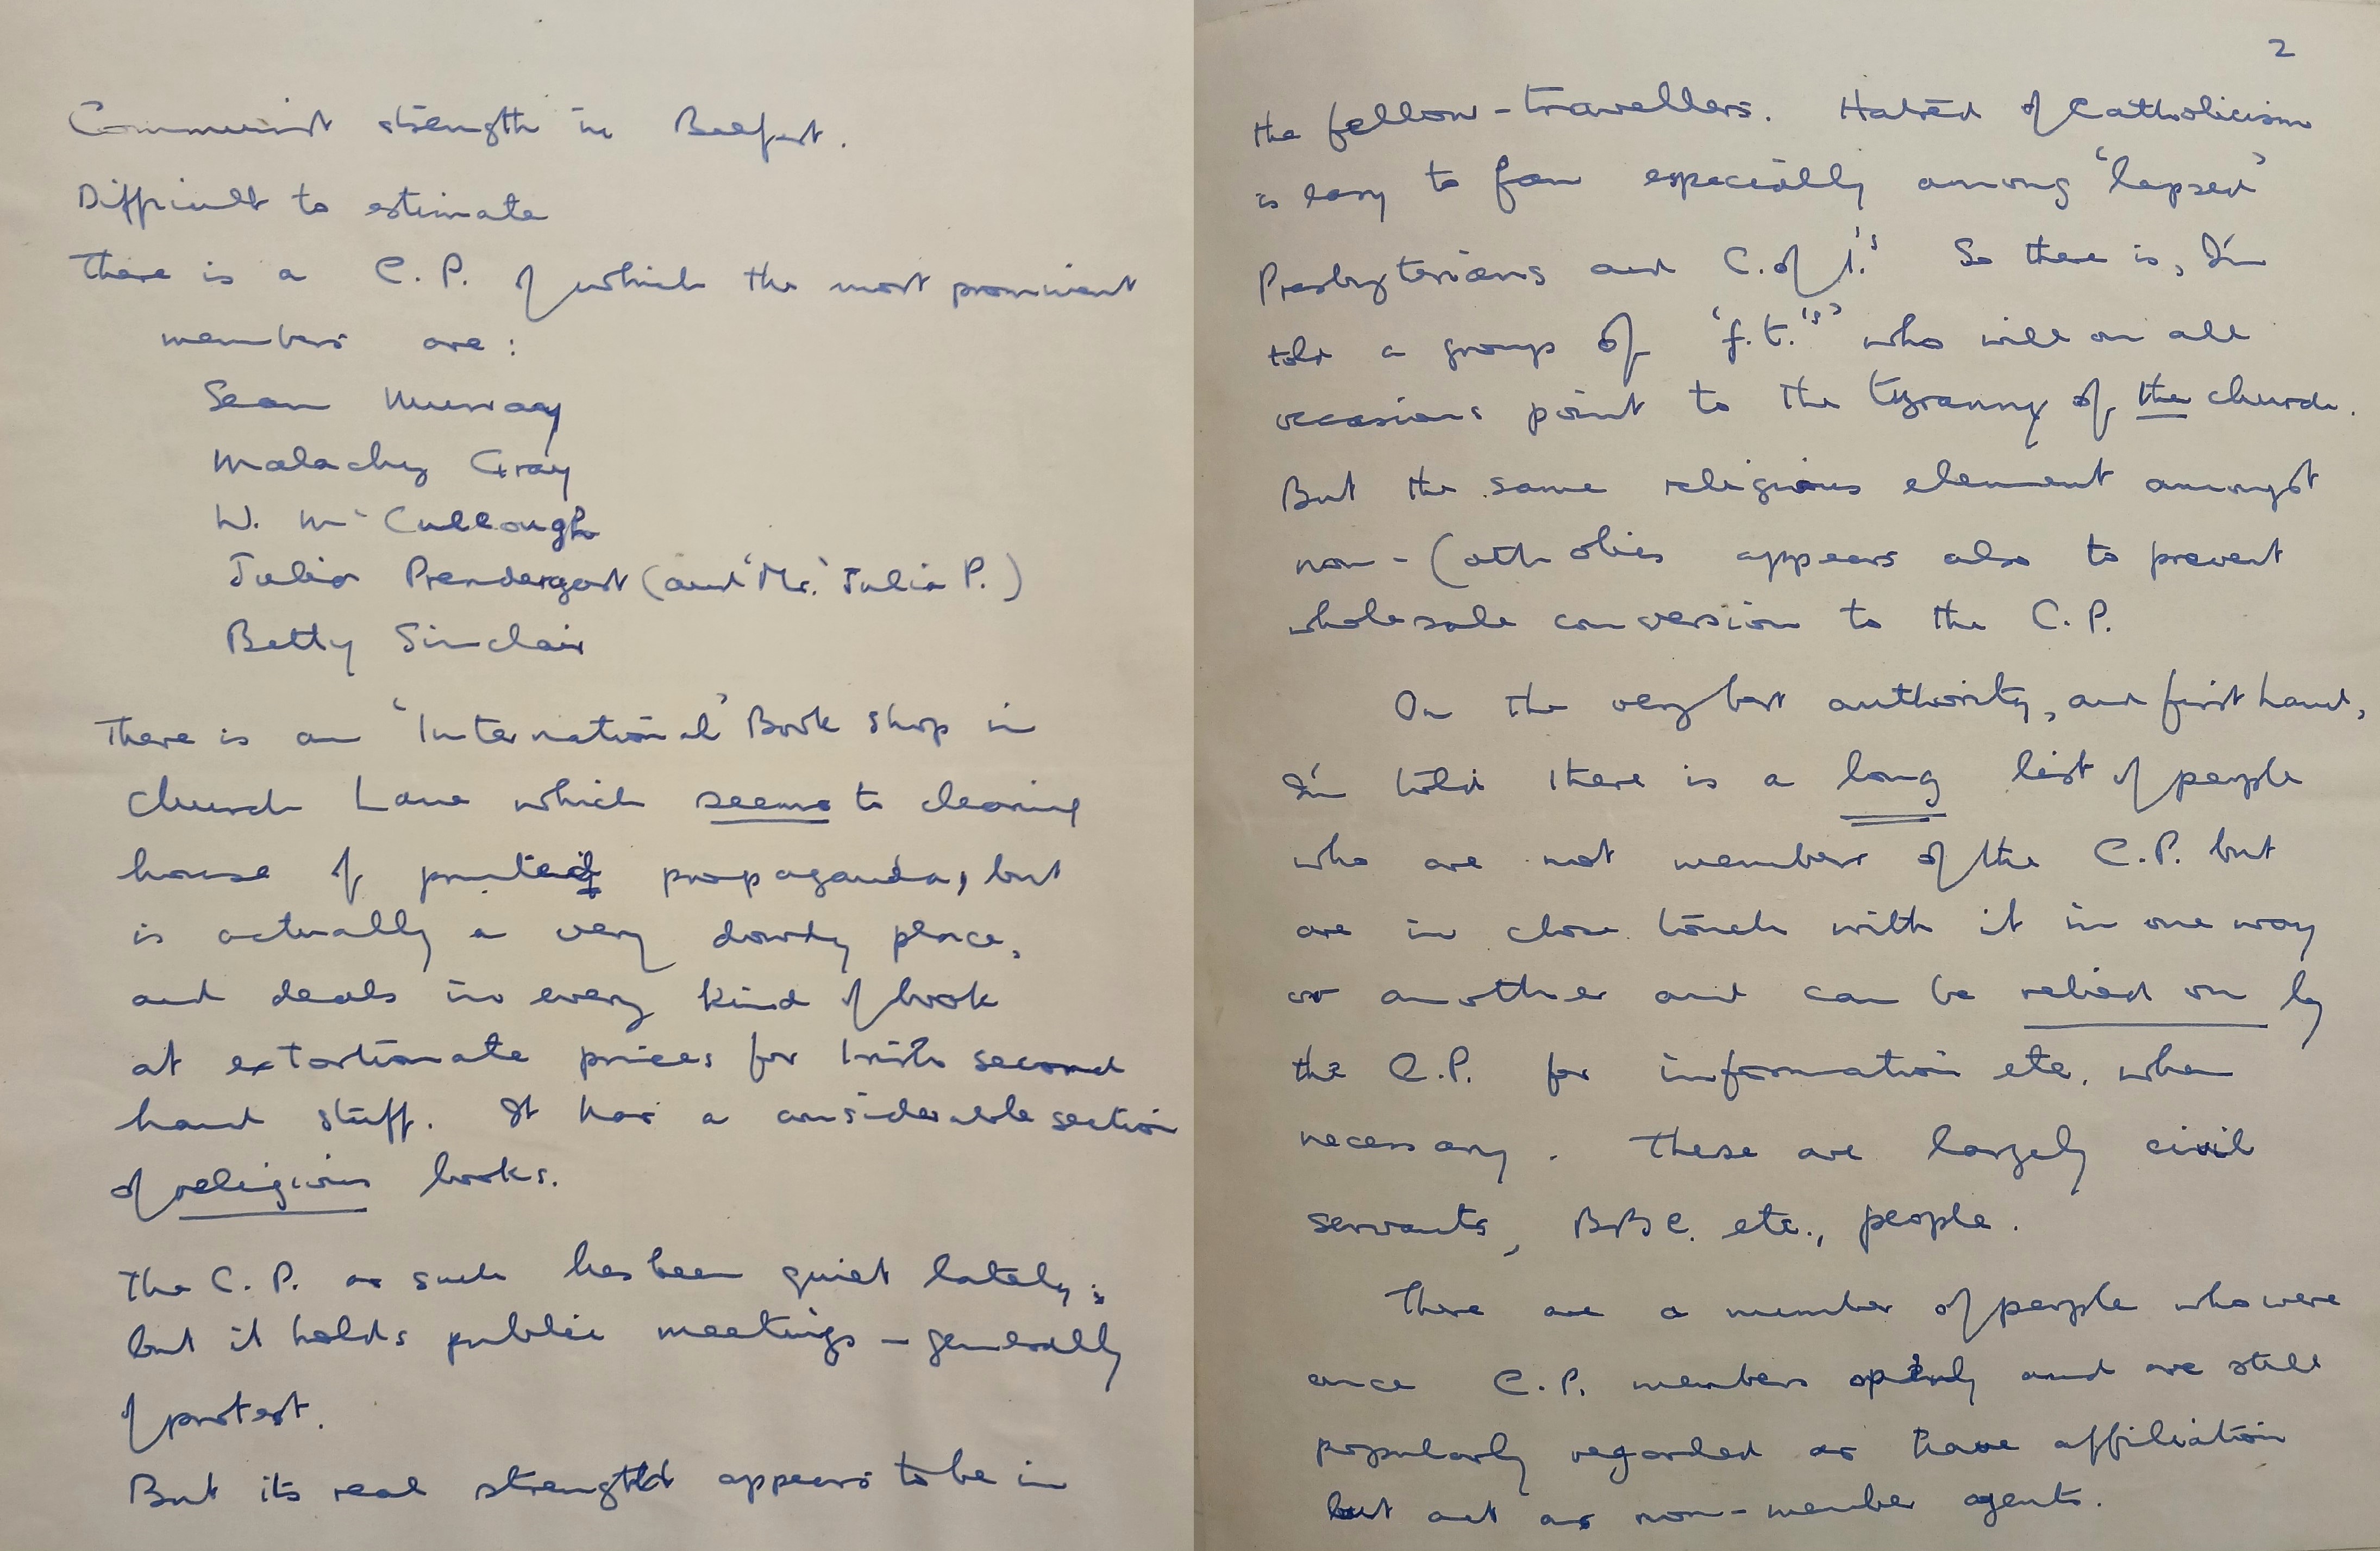 Communist strength in Belfast.
Difficult to estimate
There is a C.P. of which the most prominent
members are:
Sean Murray
Malachy Gray
W. McCullough
Julia Prendergast (and 'Mr.' Julia P.)
Betty Sinclair
There is an 'International' Book shop in
Church Lane which seems to clearing
house of printed propaganda, but
is actually a very dowdy place,
and deals in every kind of book
at extortionate prices for Irish second
hand stuff. It has a considerable section
of religious books.
The C.P. as such has been quiet lately;
but it holds public meetings – generally
of protest.
But its real strength appears to be in
2
the fellow-travellers. Hatred of Catholicism
is easy to fan especially among 'lapsed'
Presbyterians and C. of I.'s So there is, I'm
told a group of 'f.t.'s' who will on all
occasions point to the tyranny of the church.
But the same religious element amongst
non-Catholics appears also to prevent
wholesale conversion to the C.P.
On the very best authority, and first hand,
I'm told there is a long list of people
who are not members of the C.P. but
are in close touch with it in one way
or another and can be relied on by
the C.P. for information etc. when
necessary. These are largely civil
servants, BBC. etc., people.
There are a number of people who were
once C.P. members openly and are still
popularly regarded as have affiliation
but act as non-member agents.